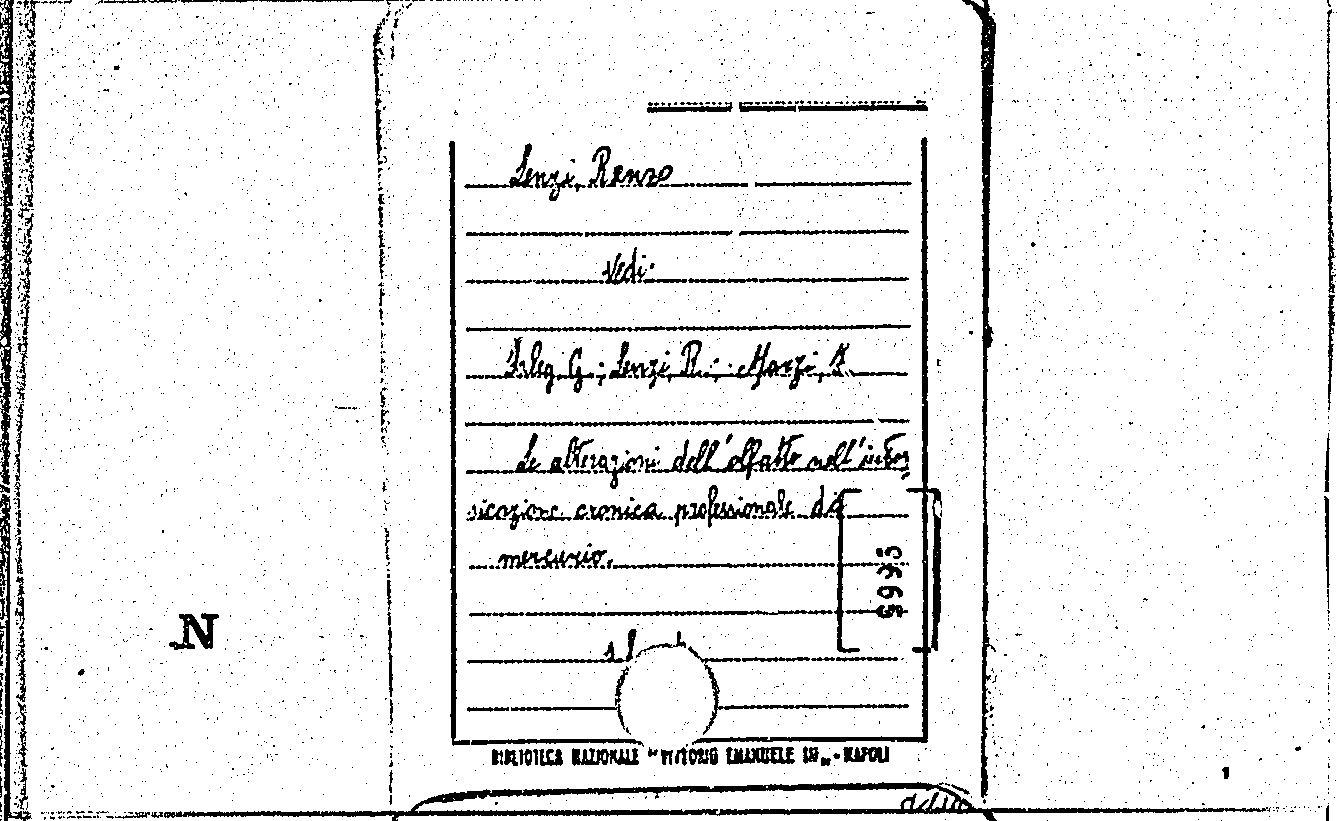 Lenzi, Renzo
Vedi:
G.; Lenzi, R.; Marzi, A.
Le alterazioni dell'olfatto nell'intos
sicazione cronica professionale da
mercurio.
5993
BIBLIOTECA NAZIONALE "VITTORIO EMANUELE III" - NAPOLI
N
1